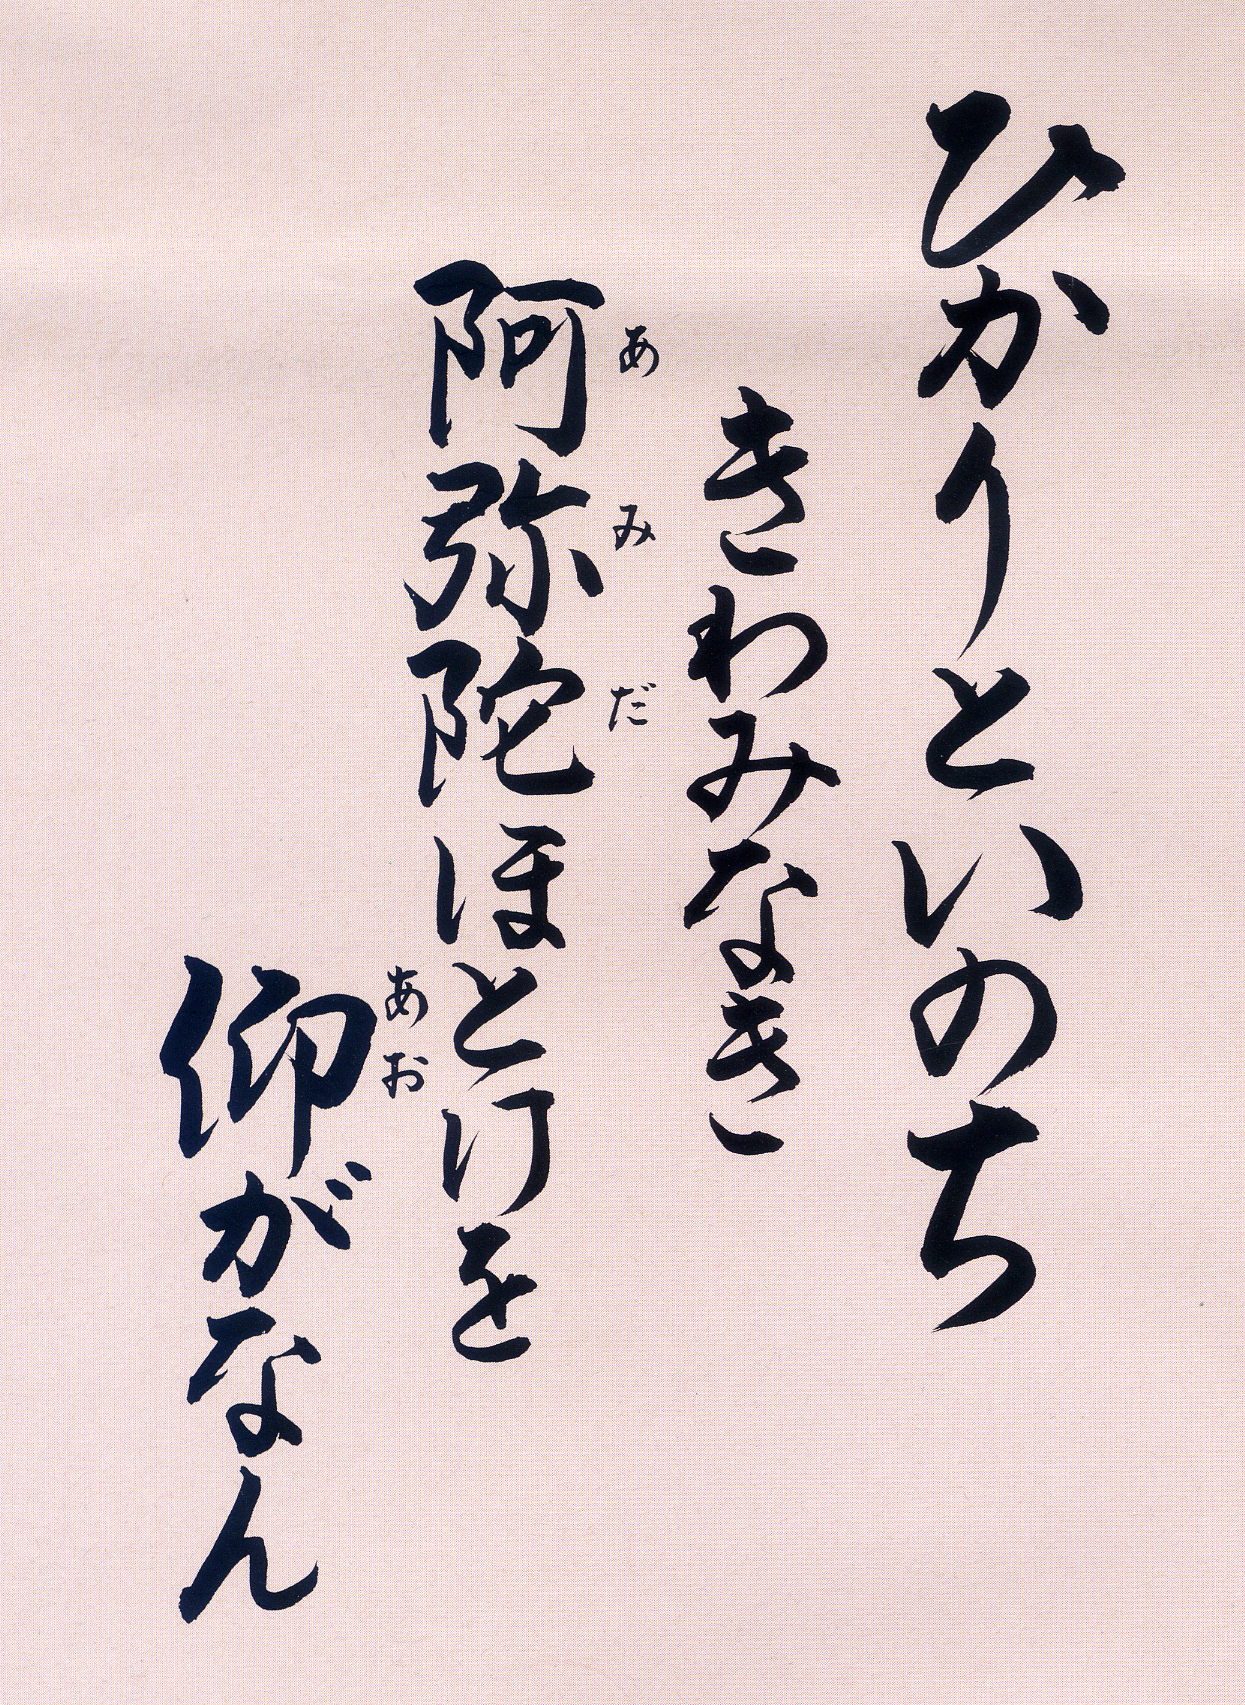 ひかりといのち
きわみなき
阿弥陀ほとけを
あみだ
仰がなん
あお